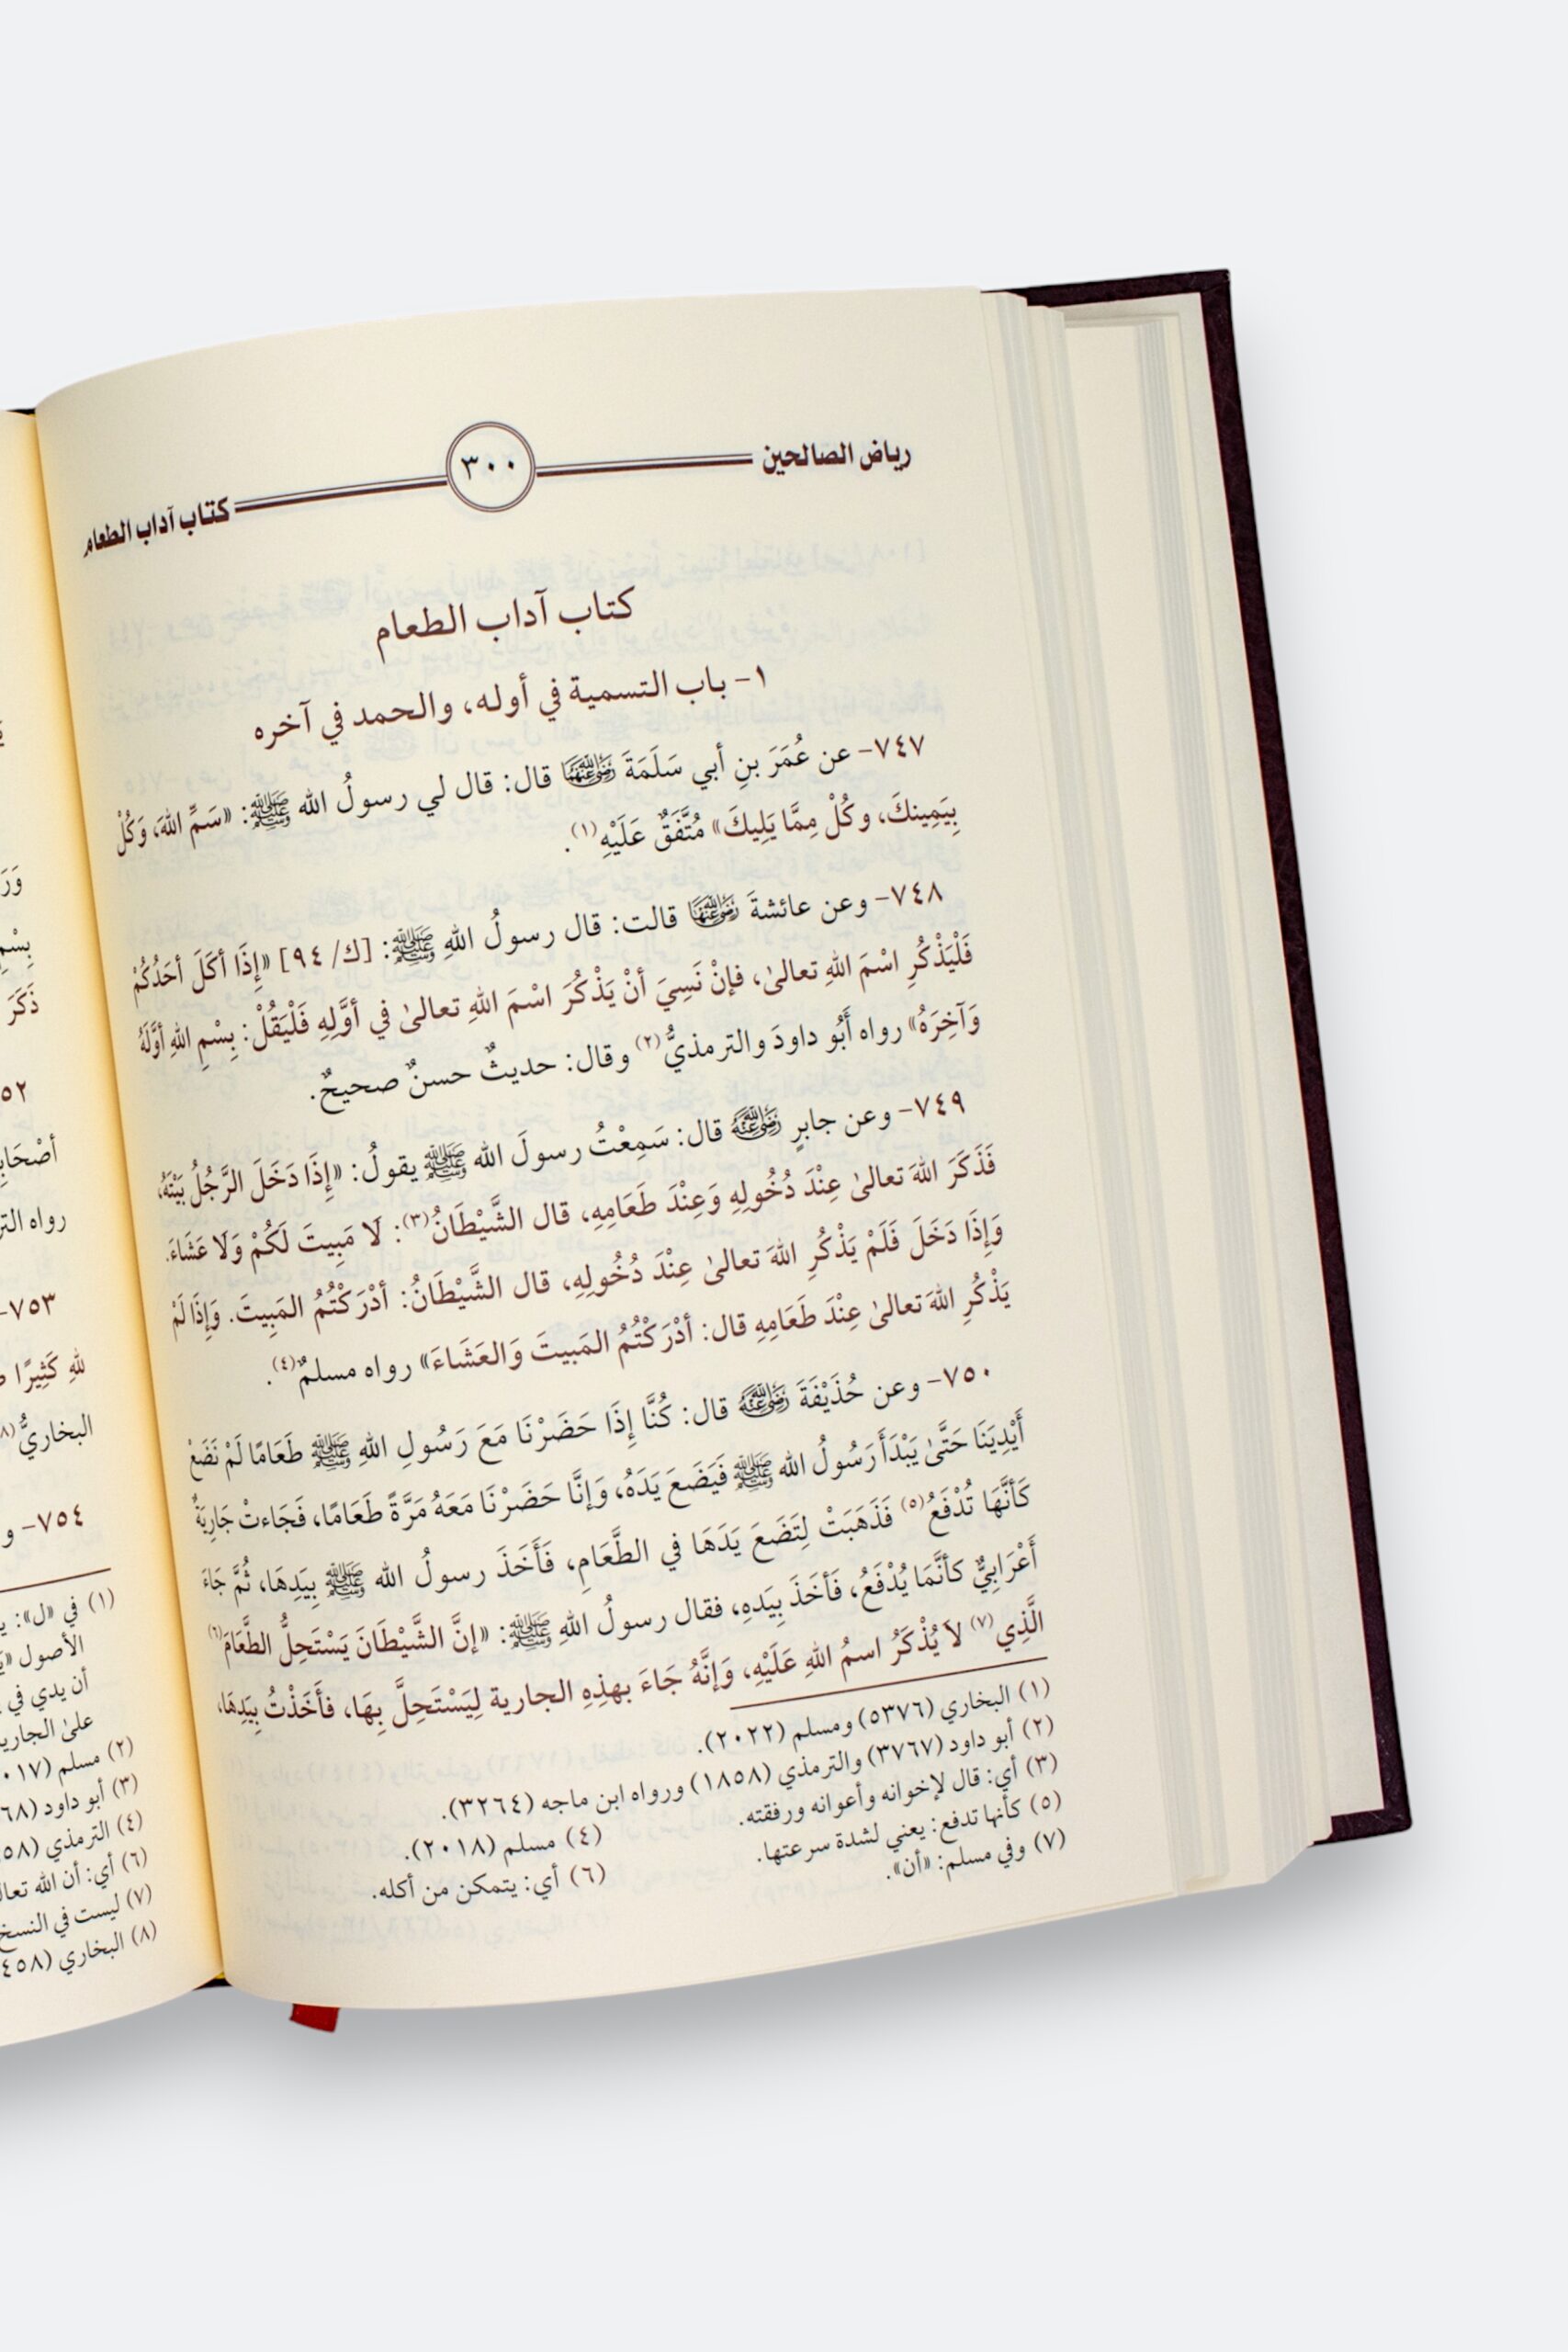 رياض الصالحين
٣٠٠
كتاب آداب الطعام
كتاب آداب الطعام
١- باب التسمية في أوله، والحمد في آخره
٧٤٧- عن عُمَرَ بنِ أبي سَلَمَةَ رضي الله عنهما قال: قال لي رسولُ الله ﷺ: «سَمِّ اللهَ، وَكُلْ
بِيَمِينكَ، وكُلْ مِمَّا يَلِيكَ» مُتَّفَقٌ عَلَيْهِ(١).
٧٤٨- وعن عائشةَ رضي الله عنها قالت: قال رسولُ اللهِ ﷺ: [ك/ ٩٤] «إِذَا أكَلَ أحَدُكُمْ
فَلْيَذْكُرِ اسْمَ اللهِ تعالىٰ، فإنْ نَسِيَ أنْ يَذْكُرَ اسْمَ اللهِ تعالىٰ في أوَّلِهِ فَلْيَقُلْ: بِسْمِ اللهِ أوَّلَهُ
وَآخِرَهُ» رواه أَبُو داودَ والترمذيُّ(٢) وقال: حديثٌ حسنٌ صحيحٌ.
٧٤٩- وعن جابرٍ رضي الله عنه قال: سَمِعْتُ رسولَ الله ﷺ يقولُ: «إِذَا دَخَلَ الرَّجُلُ بَيْتَهُ،
فَذَكَرَ اللهَ تعالىٰ عِنْدَ دُخُولِهِ وَعِنْدَ طَعَامِهِ، قال الشَّيْطَانُ(٣): لَا مَبِيتَ لَكُمْ وَلَا عَشَاءَ.
وَإِذَا دَخَلَ فَلَمْ يَذْكُرِ اللهَ تعالىٰ عِنْدَ دُخُولِهِ، قال الشَّيْطَانُ: أدْرَكْتُمُ المَبِيتَ. وَإِذَا لَمْ
يَذْكُرِ اللهَ تعالىٰ عِنْدَ طَعَامِهِ قال: أدْرَكْتُمُ المَبيتَ وَالعَشَاءَ» رواه مسلمٌ(٤).
٧٥٠- وعن حُذَيْفَةَ رضي الله عنه قال: كُنَّا إِذَا حَضَرْنَا مَعَ رَسُولِ اللهِ ﷺ طَعَامًا لَمْ نَضَعْ
أَيْدِيَنَا حَتَّىٰ يَبْدَأَ رَسُولُ الله ﷺ فَيَضَعَ يَدَهُ، وَإِنَّا حَضَرْنَا مَعَهُ مَرَّةً طَعَامًا، فَجَاءتْ جَارِيَةٌ
كَأَنَّهَا تُدْفَعُ(٥) فَذَهَبَتْ لِتَضَعَ يَدَهَا في الطَّعَامِ، فَأَخَذَ رسولُ الله ﷺ بِيَدِهَا، ثُمَّ جَاءَ
أَعْرَابِيٌّ كأنَّمَا يُدْفَعُ، فَأخَذَ بِيَدهِ، فقال رسولُ اللهِ ﷺ: «إنَّ الشَّيْطَانَ يَسْتَحِلُّ الطَّعَامَ(٦)
الَّذِي(٧) لاَ يُذْكَرُ اسمُ اللهِ عَلَيْهِ، وَإنَّهُ جَاءَ بهذِهِ الجارية لِيَسْتَحِلَّ بِهَا، فأَخَذْتُ بِيَدِهَا،
(١) البخاري (٥٣٧٦) ومسلم (٢٠٢٢).
(٢) أبو داود (٣٧٦٧) والترمذي (١٨٥٨) ورواه ابن ماجه (٣٢٦٤).
(٣) أي: قال لإخوانه وأعوانه ورفقته.
(٤) مسلم (٢٠١٨).
(٥) كأنها تدفع: يعني لشدة سرعتها.
(٦) أي: يتمكن من أكله.
(٧) وفي مسلم: «أن».
وَرَ
بِسْمِ
ذَكَرَ
٥٢
رواه
٧٥٣-
للهِ كَثِيرًا
البخاريُّ(٨
٧٥٤- و
(١) في «ل»:
الأصول
أن يدي في
علىٰ
(٢) مسلم (٠١٧
(٣) أبو داود (٦٨
(٤) الترمذي (٥٨
(٦) أي: أن الله
(٧) ليست في
(٨) البخاري (٤٥٨